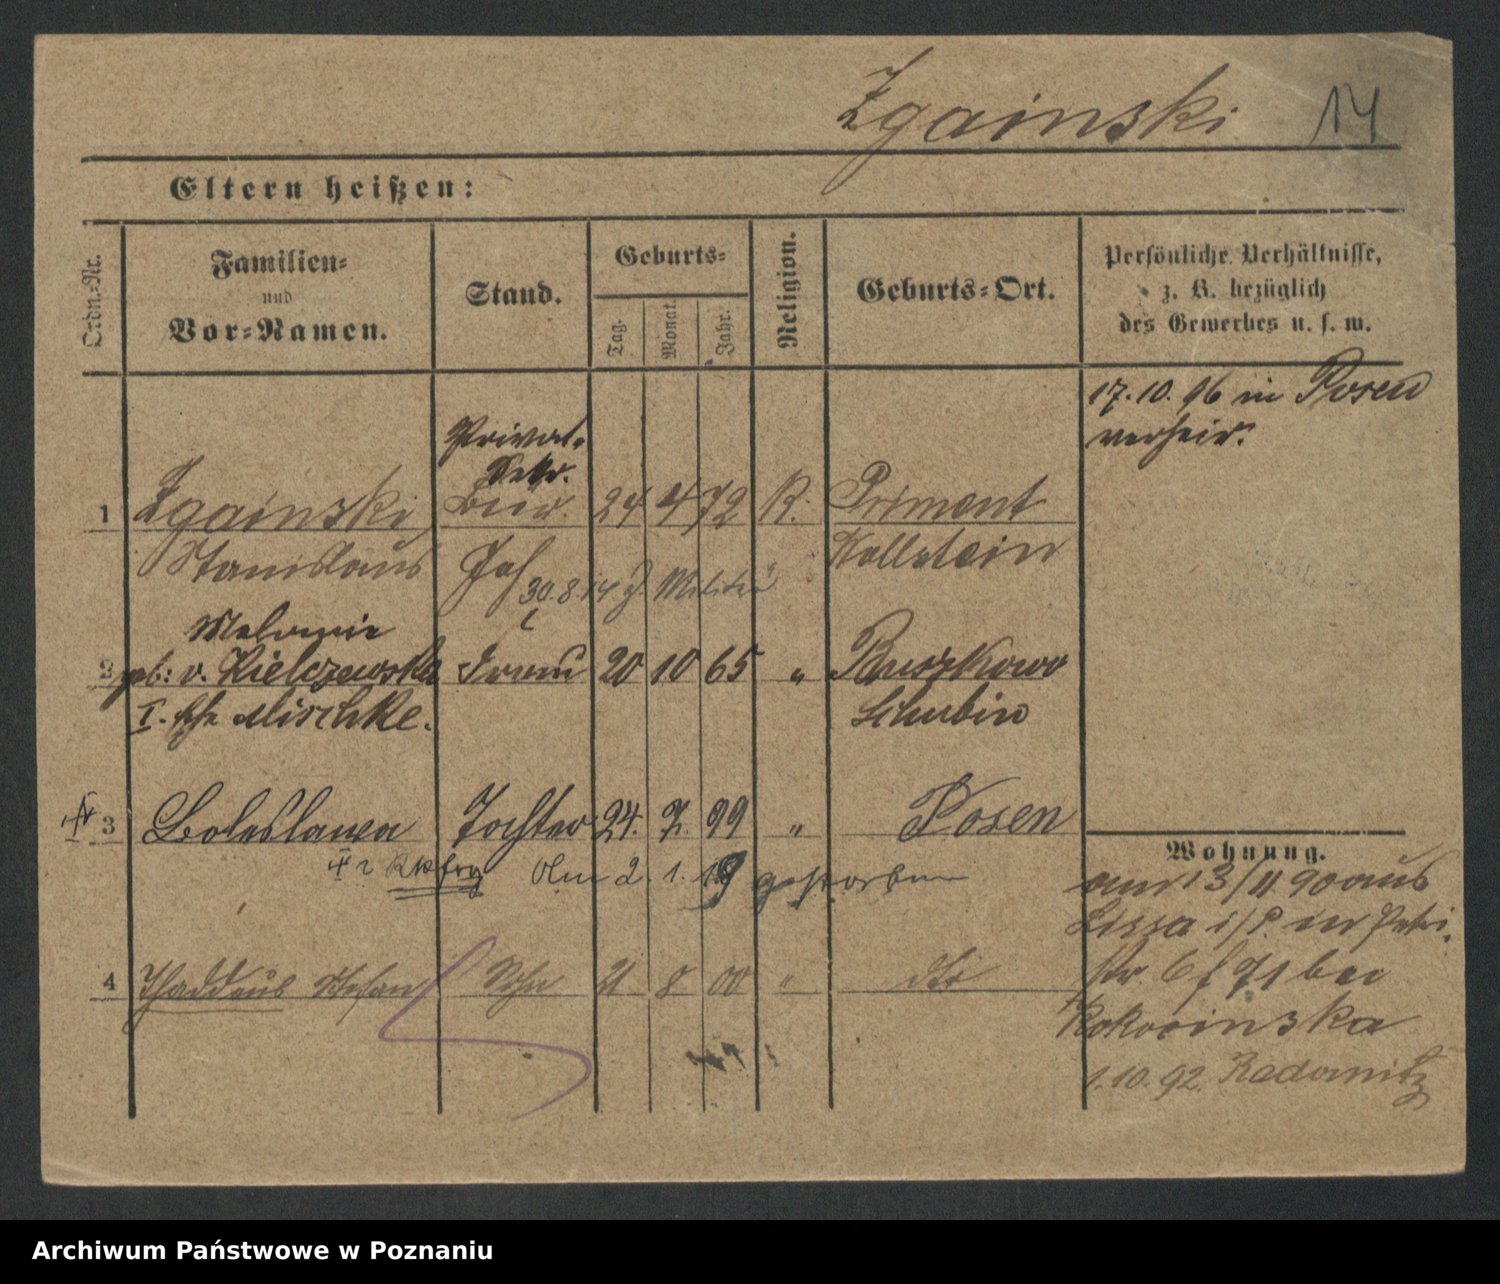 Zgainski 14
Eltern heißen:
Ordn.-Nr.
Familien-
und
Vor-Namen.
Stand.
Geburts-
Tag.
Monat.
Jahr.
Religion.
Geburts-Ort.
Persönliche Verhältnisse,
z. B. bezüglich
des Gewerbes u. s. w.
17. 10. 96 in Posen
verheir.
Privat-
Sekr.
1 Zgainski 24 4 72 K. Priment
Stanislaus Wollstein
30.8.14 z. Militär
Melanie
2 geb: v. Kielczewska Frau 20 10 65 " Buszkowo
I. Ehe Mischke. Schubin
3 Boleslawa Tochter 24. 7. 99 " Posen
Am 2. 1. 19 gestorben
4 Thaddäus Stefan Sohn 21 8 00 " dto
Wohnung.
am 13/11 90 aus
Lissa i/P. in Petri-
str. 6 bei
Kokocinska
1.10.92. Radomitz
Archiwum Państwowe w Poznaniu